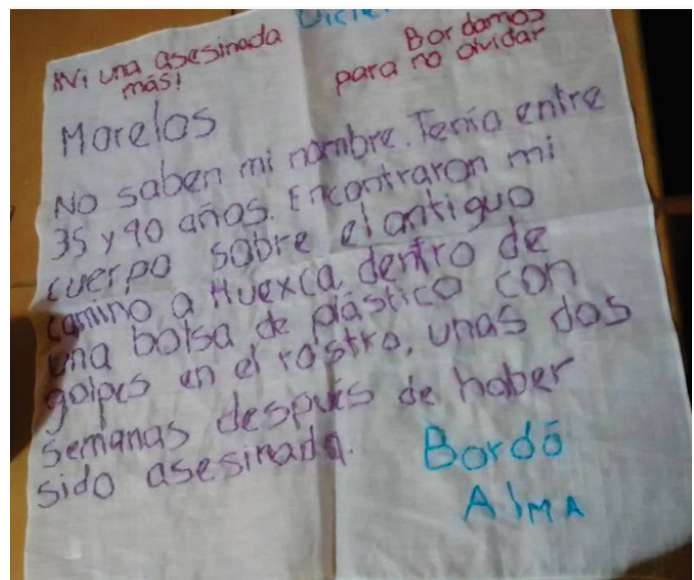 ¡Ni una asesinada
más!
Bordamos
para no olvidar
Morelos
No saben mi nombre. Tenía entre
35 y 40 años. Encontraron mi
cuerpo sobre el antiguo
camino a Huexca, dentro de
una bolsa de plástico con
golpes en el rostro, unas dos
semanas después de haber
sido asesinada.
Bordó
Alma